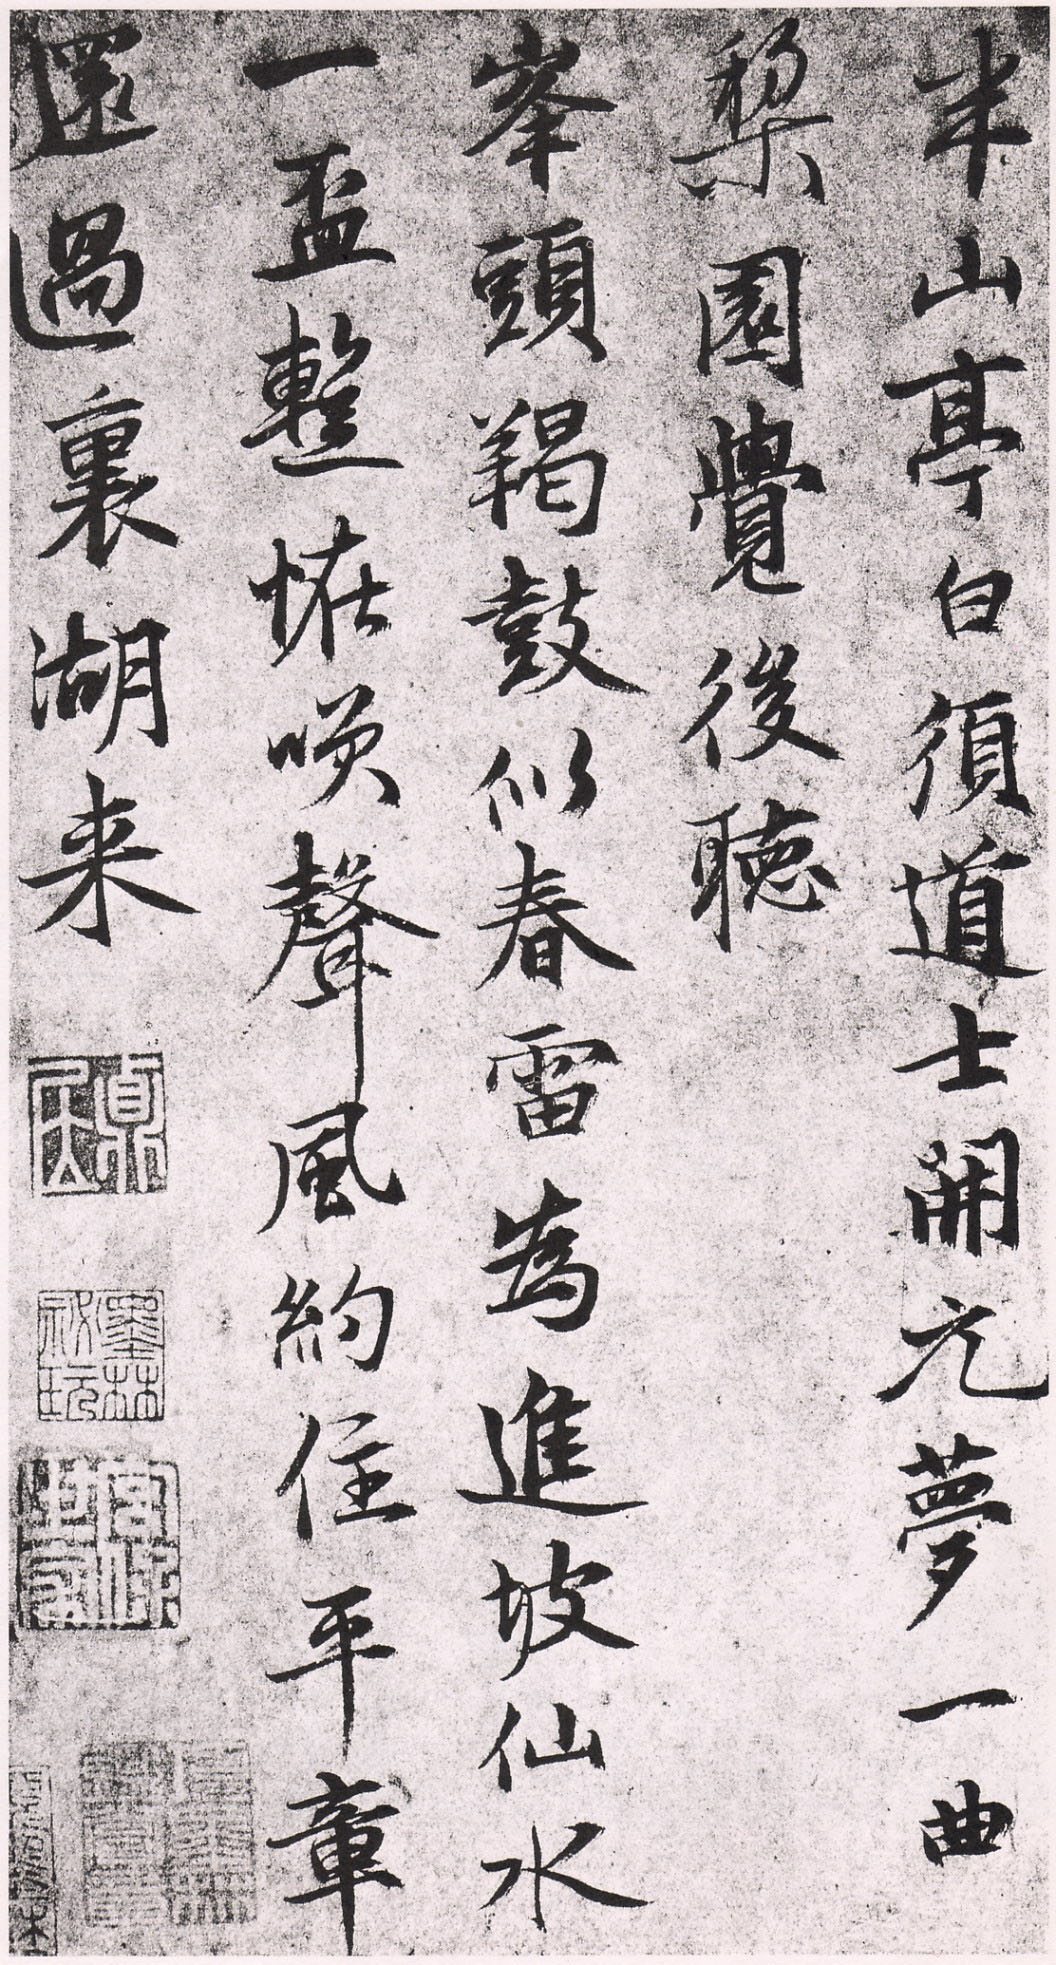 半山亭白須道士開元夢一曲
棃園覺後聽
峯頭羯鼓似春雷為進坡仙水
一盃整恠喚聲風約住平章
還過裏湖来
墨林
祕玩